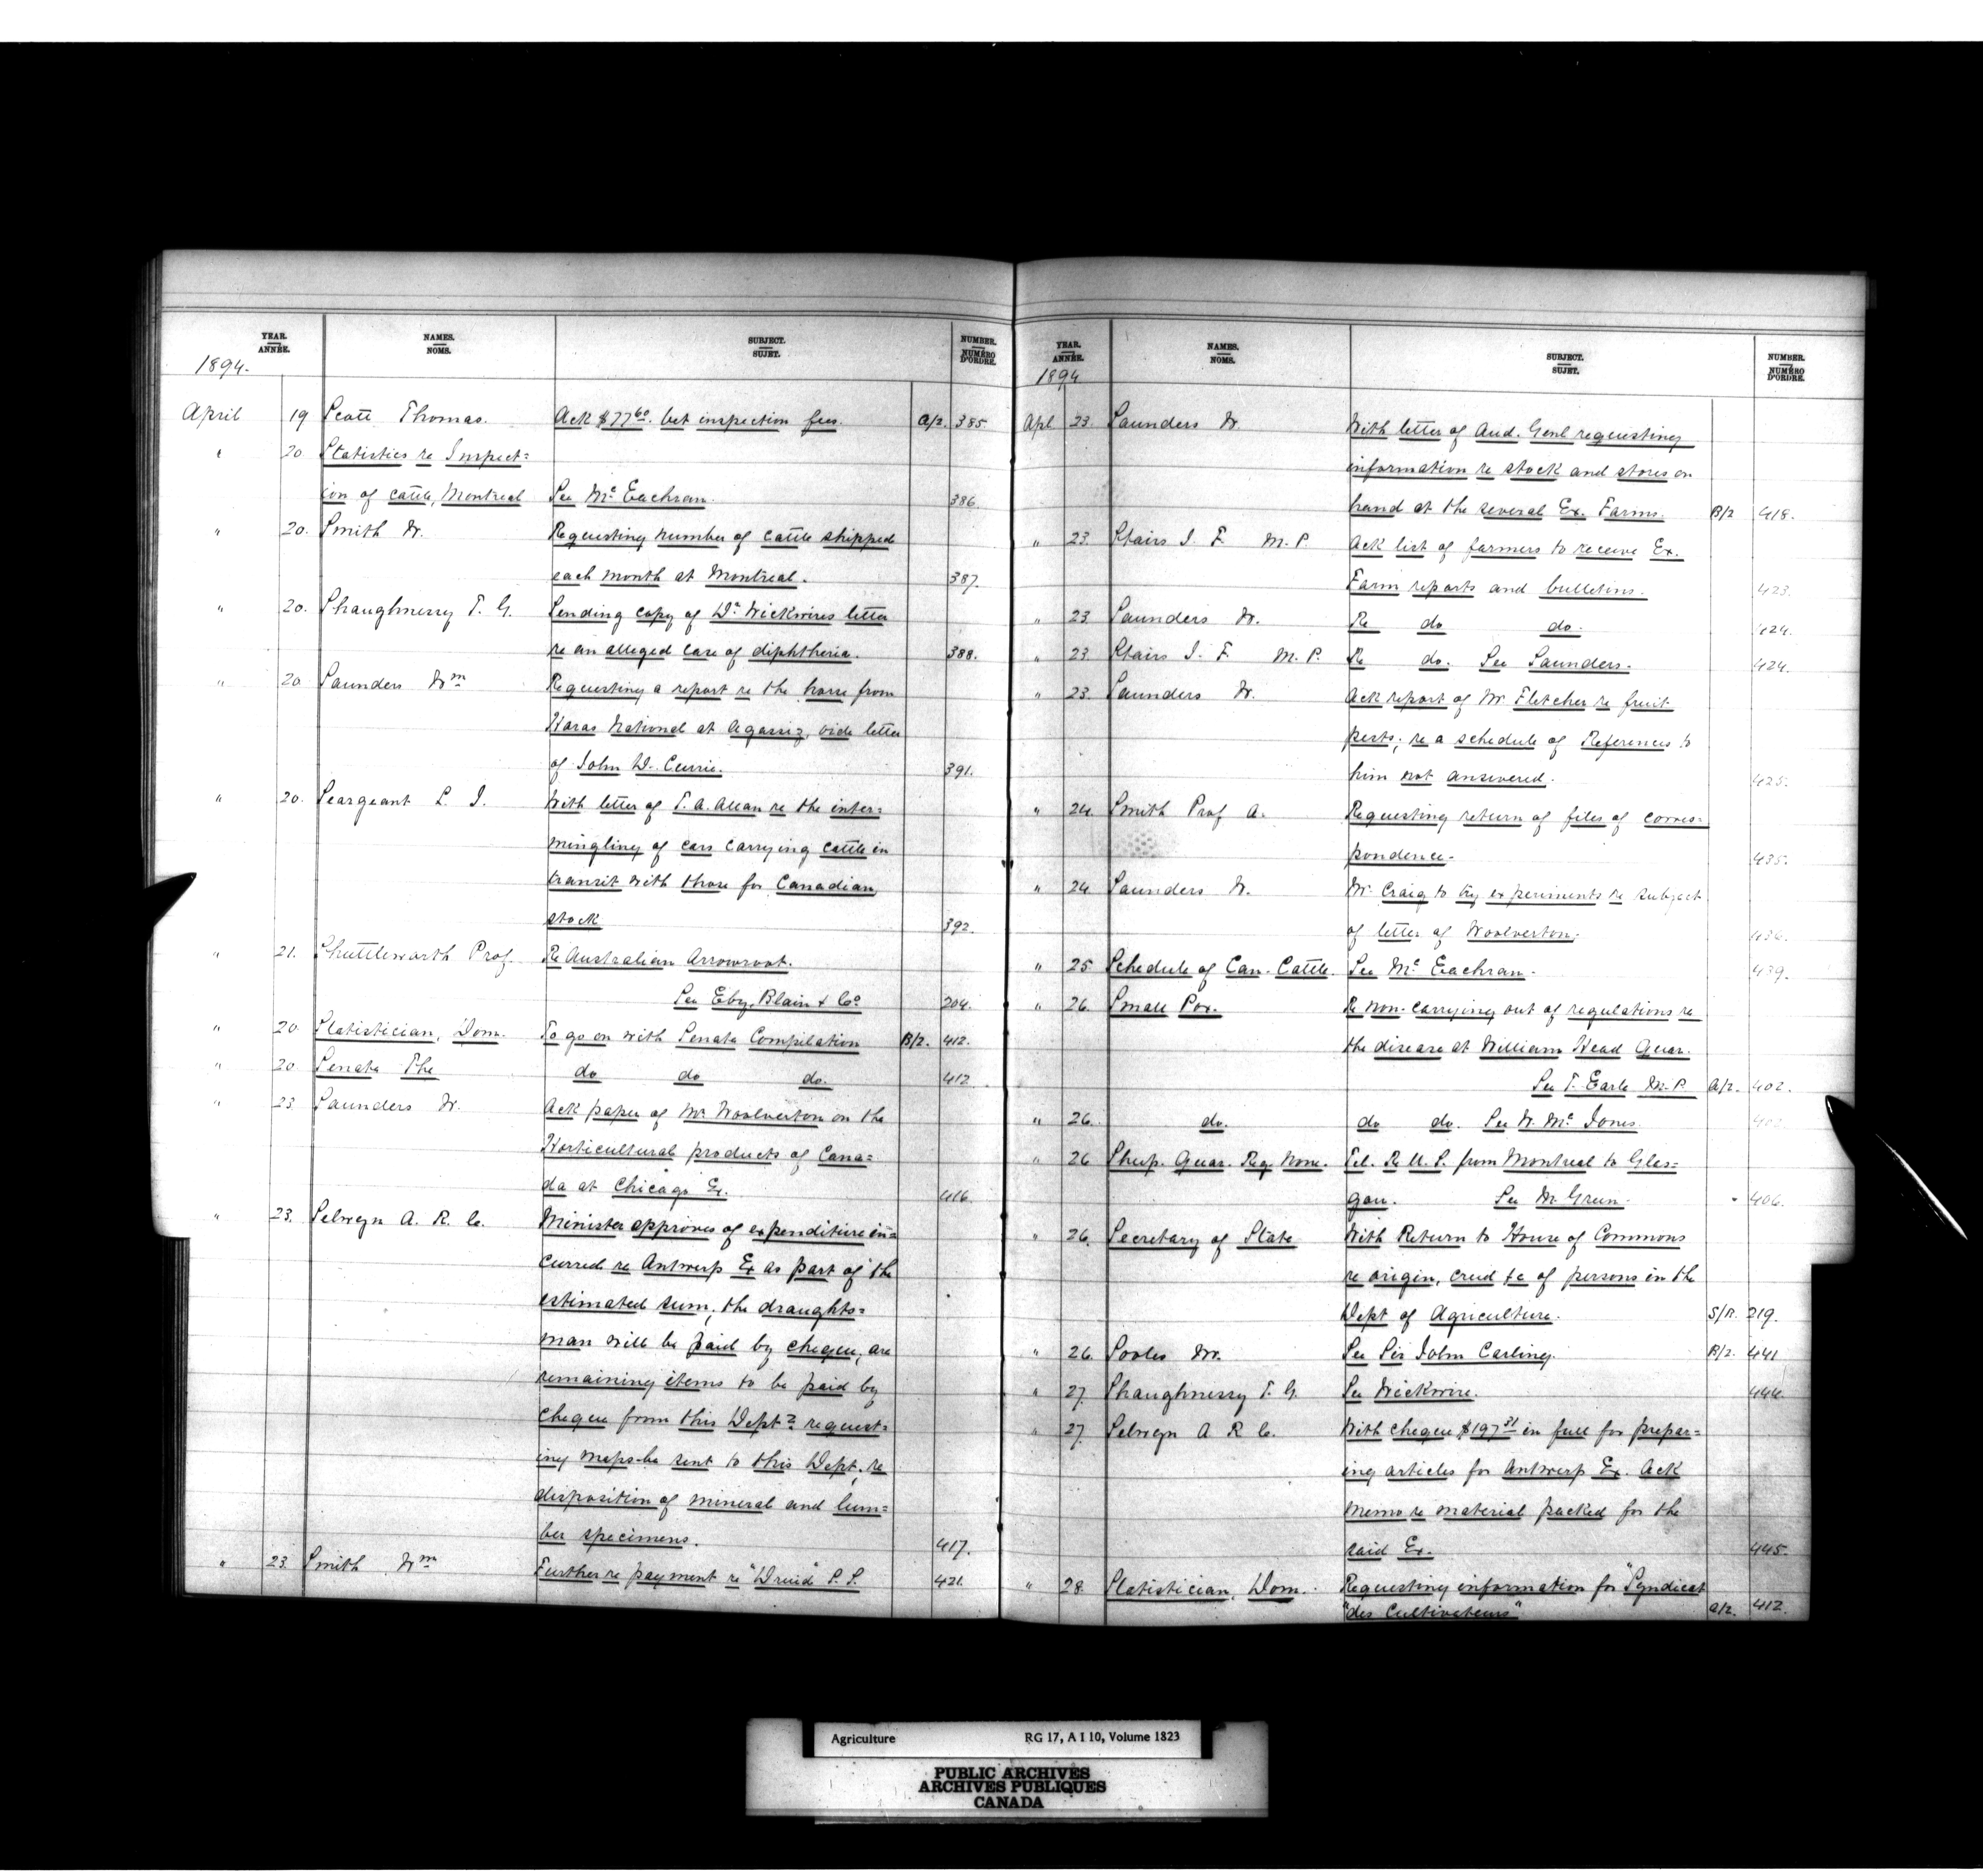 YEAR. ANNÉE. NAMES. NOMS. SUBJECT. SUJET. NUMBER. NUMÉRO D'ORDRE.
1894.
April 19 Scott Thomas. Ack $77 60. bet inspection fees. A/2. 385
" 20 Statistics re Inspect=
ion of cattle, Montreal See Mc Eachran. 386
" 20. Smith W. Requesting number of cattle shipped
each month at Montreal. 387.
" 20. Shaughnessy T. G. Sending copy of Dr Wickwires letter
re an alleged case of diphtheria. 388.
" 20. Saunders Wm Requesting a report re the horse from
Haras National at Agassiz, vide letter
of John D. Currie. 391.
" 20. Seargeant L. J. With letter of T. A. Allan re the inter=
mingling of cars carrying cattle in
transit with those for Canadian
stock 392.
" 21. Shuttleworth Prof. Re Australian Arrowroot.
See Eby, Blain & Co 204.
" 20. Statistician, Dom. To go on with Senate Compilation B/2. 412.
" 20 Senate The do do do. 412
" 23 Saunders W. Ack paper of Mr Woolverton on the
Horticultural products of Cana=
da at Chicago Ex. 416
" 23. Selwyn A. R. C. Minister approves of expenditure in=
curred re Antwerp Ex as part of the
estimated sum, the draughts=
man will be paid by cheque, are
remaining items to be paid by
cheque from this Dept? request=
ing maps be sent to this Dept, re
disposition of mineral and lum=
ber specimens. 417.
" 23. Smith Wm Further re payment re "Druid" S. S. 421.
YEAR. ANNÉE. NAMES. NOMS. SUBJECT. SUJET. NUMBER. NUMÉRO D'ORDRE.
1894
Apl 23. Saunders W. With letter of Aud. Genl requesting
information re stock and stores on
hand at the several Ex. Farms. B/2 418.
" 23. Stairs J. F. M. P. Ack list of farmers to receive Ex.
Farm reports and bulletins. 423.
" 23 Saunders W. Re do do. 424.
" 23. Stairs J. F. M. P. Re do. See Saunders. 424.
" 23. Saunders W. Ack report of Mr Fletcher re fruit
pests; re a schedule of References to
him not answered. 425.
" 24. Smith Prof A. Requesting return of files of corres=
pondence. 435.
" 24 Saunders W. Mr Craig to try experiments re subject
of letter of Woolverton. 436.
" 25 Schedule of Can. Cattle. See Mc Eachran. 439.
" 26 Small Pox. Re non-carrying out of regulations re
the disease at William Head Quar.
See T. Earle M.P. A/2. 402.
" 26. do. do do. See W. Mc Jones. 402.
" 26 Shep. Quar. Reg. None. Tel. Re U. S. from Montreal to Glas=
gow. See M. Green. " 406.
" 26. Secretary of State With Return to House of Commons
re origin, creed &c of persons in the
Dept of Agriculture. S/R. 219.
" 26. Sooles Mr. See Sir John Carling. B/2. 441
" 27. Shaughnessy T. G. See Wickwire. 444.
" 27. Selwyn A R C. With cheque $197 31 in full for prepar=
ing articles for Antwerp Ex. Ack
memo re material packed for the
said Ex. 445.
" 28. Statistician, Dom. Requesting information for "Syndicat
"des Cultivateurs" A/2. 412.
Agriculture RG 17, A I 10, Volume 1823
PUBLIC ARCHIVES
ARCHIVES PUBLIQUES
CANADA